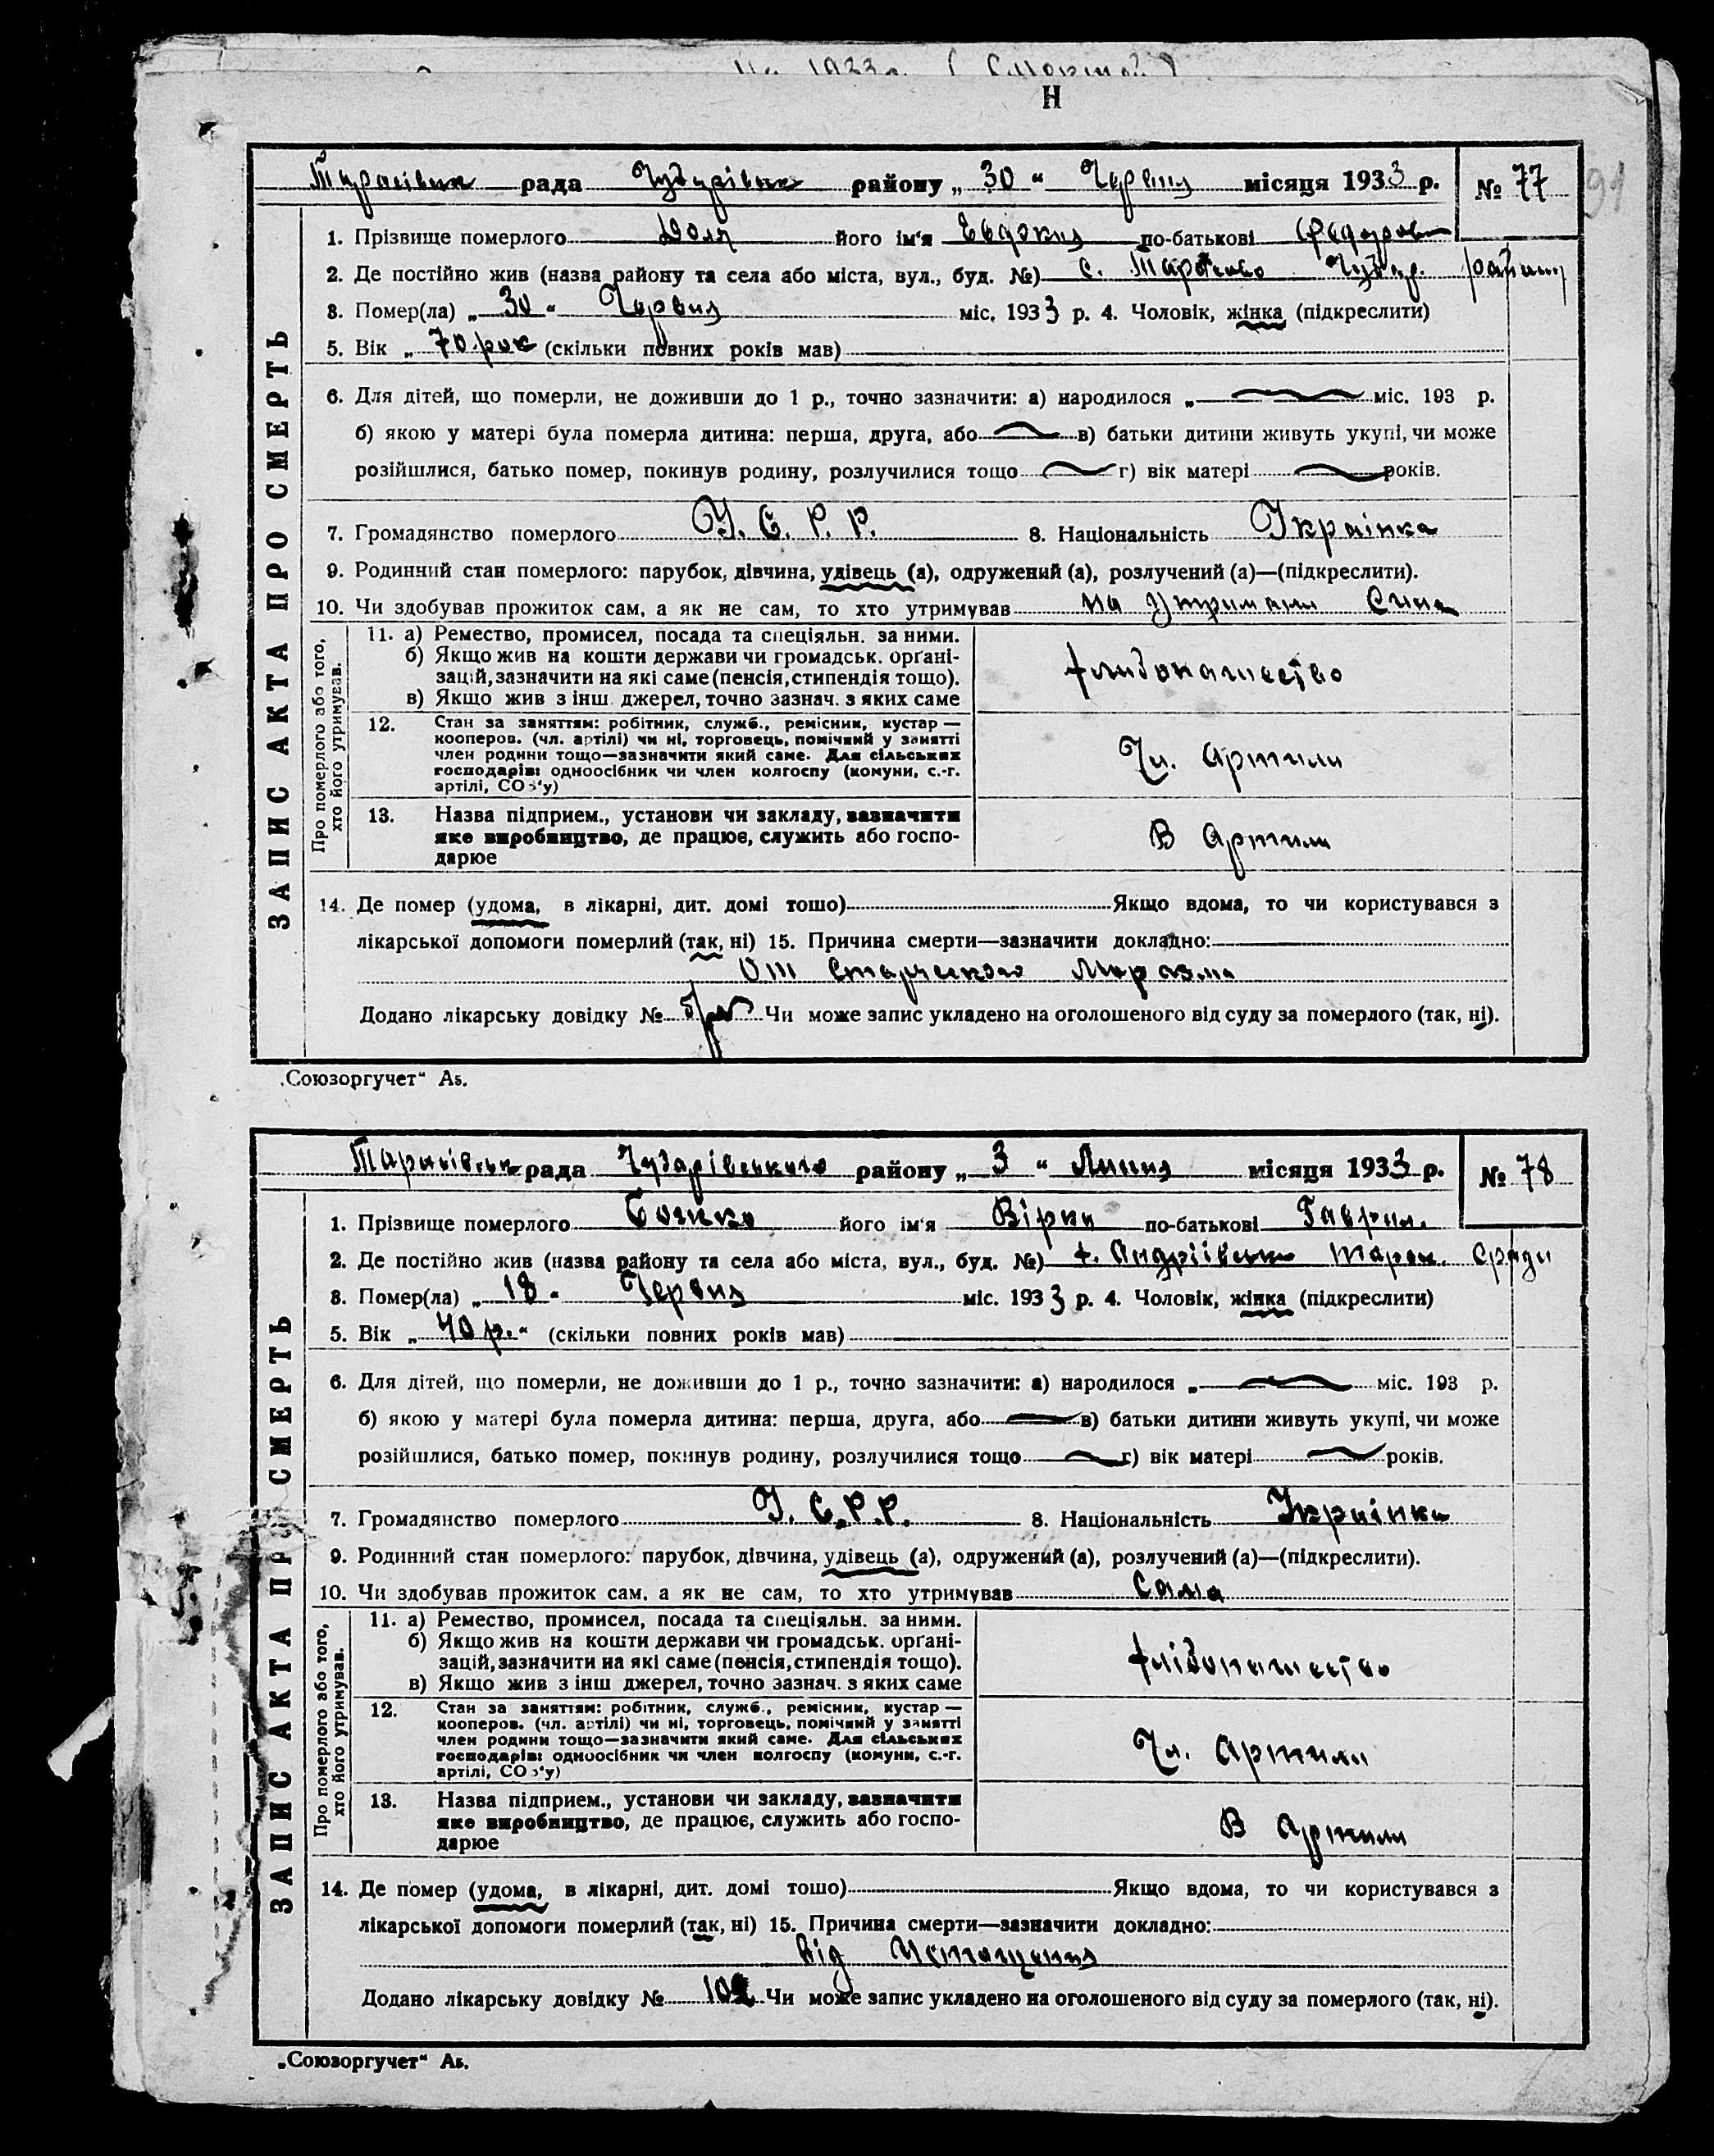 Н
91
Тарасівськ рада Чубарівськ району „ 30 “ Червня місяця 1933 р. № 77
ЗАПИС АКТА ПРО СМЕРТЬ
1. Прізвище померлого Доля його ім'я Евдокия по-батькові Федоров
2. Де постійно жив (назва району та села або міста, вул., буд. №) с. Чубар. району
3. Помер(ла) „ 30 “ Червня міс. 1933 р. 4. Чоловік, жінка (підкреслити)
5. Вік „ 70 рок (скільки повних років мав)
6. Для дітей, що померли, не доживши до 1 р., точно зазначити: а) народилося „ міс. 193 р.
б) якою у матері була померла дитина: перша, друга, або в) батьки дитини живуть укупі, чи може
розійшлися, батько помер, покинув родину, розлучилися тощо г) вік матері років.
7. Громадянство померлого У. С. Р. Р. 8. Національність Українка
9. Родинний стан померлого: парубок, дівчина, удівець (а), одружений (а), розлучений (а)—(підкреслити).
10. Чи здобував прожиток сам, а як не сам, то хто утримував на утримані Сина
Про померлого або того, хто його утримував.
11. а) Ремество, промисел, посада та спеціяльн. за ними.
б) Якщо жив на кошти держави чи громадськ. органі-
зацій, зазначити на які саме (пенсія, стипендія тощо).
в) Якщо жив з інш. джерел, точно зазнач. з яких саме
хлибопашество
12. Стан за заняттям: робітник, служб., ремісник, кустар —
кооперов. (чл. артілі) чи ні, торговець, помічний у занятті
член родини тощо—зазначити який саме. Для сільських
господарів: одноосібник чи член колгоспу (комуни, с.-г.
артілі, СОЗ'у)
Чл. Артили
13. Назва підприєм., установи чи закладу, зазначити
яке виробництво, де працює, служить або госпо-
дарює
В Артили
14. Де помер (удома, в лікарні, дит. домі тошо) Якщо вдома, то чи користувався з
лікарської допомоги померлий (так, ні) 15. Причина смерти—зазначити докладно:
От Старческого Маразма
Додано лікарську довідку № Чи може запис укладено на оголошеного від суду за померлого (так, ні).
„Союзоргучет“ А5.
Тарасівськ рада Чубарівського району „ 3 “ Липня місяця 1933 р. № 78
ЗАПИС АКТА ПРО СМЕРТЬ
1. Прізвище померлого Бойко його ім'я Вірка по-батькові Гаврил.
2. Де постійно жив (назва району та села або міста, вул., буд. №) х. Андріївськ Тарас. с/ради
3. Помер(ла) „ 18 “ Червня міс. 1933 р. 4. Чоловік, жінка (підкреслити)
5. Вік „ 40 р. “ (скільки повних років мав)
6. Для дітей, що померли, не доживши до 1 р., точно зазначити: а) народилося „ міс. 193 р.
б) якою у матері була померла дитина: перша, друга, або в) батьки дитини живуть укупі, чи може
розійшлися, батько помер, покинув родину, розлучилися тощо г) вік матері років.
7. Громадянство померлого У. С. Р. Р. 8. Національність Українка
9. Родинний стан померлого: парубок, дівчина, удівець (а), одружений (а), розлучений (а)—(підкреслити).
10. Чи здобував прожиток сам, а як не сам, то хто утримував Сама
Про померлого або того, хто його утримував.
11. а) Ремество, промисел, посада та спеціяльн. за ними.
б) Якщо жив на кошти держави чи громадськ. органі-
зацій, зазначити на які саме (пенсія, стипендія тощо).
в) Якщо жив з інш джерел, точно зазнач. з яких саме
хлібопашество
12. Стан за заняттям: робітник, служб., ремісник, кустар —
кооперов. (чл. артілі) чи ні, торговець, помічний у занятті
член родини тощо—зазначити який саме. Для сільських
господарів: одноосібник чи член колгоспу (комуни, с.-г.
артілі, СОЗ'у)
Чл. Артили
13. Назва підприєм., установи чи закладу, зазначити
яке виробництво, де працює, служить або госпо-
дарює
В Артили
14. Де помер (удома, в лікарні, дит. домі тошо) Якщо вдома, то чи користувався з
лікарської допомоги померлий (так, ні) 15. Причина смерти—зазначити докладно:
від Истощения
Додано лікарську довідку № Чи може запис укладено на оголошеного від суду за померлого (так, ні).
„Союзоргучет“ А5.